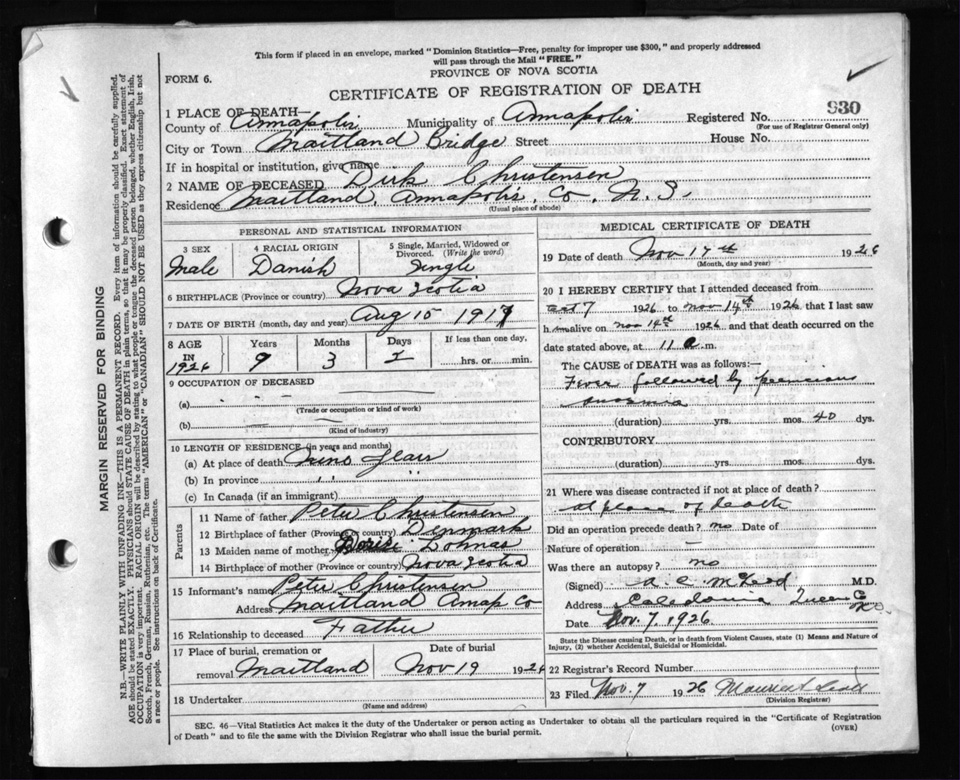 This form if placed in an envelope, marked "Dominion Statistics—Free, penalty for improper use $300," and properly addressed
will pass through the Mail "FREE."
PROVINCE OF NOVA SCOTIA
FORM 6.
CERTIFICATE OF REGISTRATION OF DEATH
930
1 PLACE OF DEATH—
County of Annapolis Municipality of Annapolis Registered No.
(For use of Registrar General only)
City or Town Maitland Bridge Street House No.
If in hospital or institution, give name
2 NAME OF DECEASED Dirk Christensen
Residence Maitland, Annapolis Co, N. S
(Usual place of abode)
PERSONAL AND STATISTICAL INFORMATION
3 SEX 4 RACIAL ORIGIN 5 Single, Married, Widowed or
Divorced. (Write the word)
Male Danish Single
6 BIRTHPLACE (Province or country) Nova Scotia
7 DATE OF BIRTH (month, day and year) Aug 15 1917
8 AGE Years Months Days If less than one day,
IN
1926 9 3 hrs. or min.
9 OCCUPATION OF DECEASED
(a)
(Trade or occupation or kind of work)
(b)
(Kind of industry)
10 LENGTH OF RESIDENCE (in years and months)
(a) At place of death Nine Years
(b) In province " "
(c) In Canada (if an immigrant)
Parents
11 Name of father Peter Christensen
12 Birthplace of father (Province or country) Denmark
13 Maiden name of mother
14 Birthplace of mother (Province or country) Nova Scotia
15 Informant's name Peter Christensen
Address Maitland Annap Co
16 Relationship to deceased Father
17 Place of burial, cremation or Date of burial
removal Maitland Nov 19 1926
18 Undertaker
(Name and address)
MEDICAL CERTIFICATE OF DEATH
19 Date of death Nov 14th 1926
(Month, day and year)
20 I HEREBY CERTIFY that I attended deceased from
Oct 7 1926 to Nov 14th 1926 that I last saw
h im alive on Nov 14th 1926 and that death occurred on
date stated above, at 11 a.m.
The CAUSE OF DEATH was as follows:—
Fever followed by pernicious
anaemia
(duration) yrs. mos. 40 dys.
CONTRIBUTORY
(duration) yrs. mos. dys.
21 Where was disease contracted if not at place of death?
At place of death
Did an operation precede death? no Date of
Nature of operation —
Was there an autopsy? no
(Signed) M.D.
Address Caledonia Queens Co
N.S.
Date Nov. 7, 1926
State the Disease causing Death, or in death from Violent Causes, state (1) Means and Nature of
Injury, (2) whether Accidental, Suicidal or Homicidal.
22 Registrar's Record Number
23 Filed Nov. 7 1926
(Division Registrar)
SEC. 46—Vital Statistics Act makes it the duty of the Undertaker or person acting as Undertaker to obtain all the particulars required in the "Certificate of Registration
of Death" and to file the same with the Division Registrar who shall issue the burial permit.
(OVER)
MARGIN RESERVED FOR BINDING
N.B.—WRITE PLAINLY WITH UNFADING INK—THIS IS A PERMANENT RECORD. Every item of information should be carefully supplied.
AGE should be stated EXACTLY. PHYSICIANS should STATE CAUSE OF DEATH in plain terms, so that it may be properly classified. Exact statement of
OCCUPATION is very important. RACIAL ORIGIN will be described by stating to what people or tongue the deceased person belonged, whether English, Irish,
Scotch, French, German, Russian, Ruthenian, etc. The terms "AMERICAN" or "CANADIAN" SHOULD NOT BE USED as they express citizenship but not
a race or people. See instructions on back of Certificate.